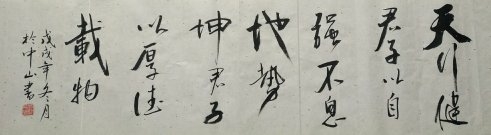 天行健
君子以自
强不息
地势
坤君子
以厚德
载物
戊戌年冬月
於中山書